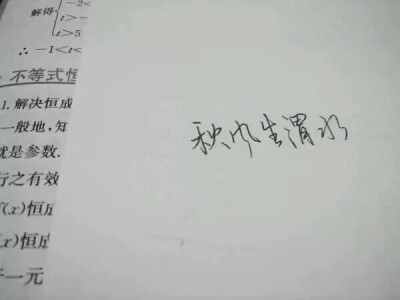 解得
-2<
t>-
t>5
∴ -1<t<
不等式恒
1. 解决恒成
一般地,知
就是参数.
行之有效
(x)恒成
(x)恒成
一元
秋风生渭水